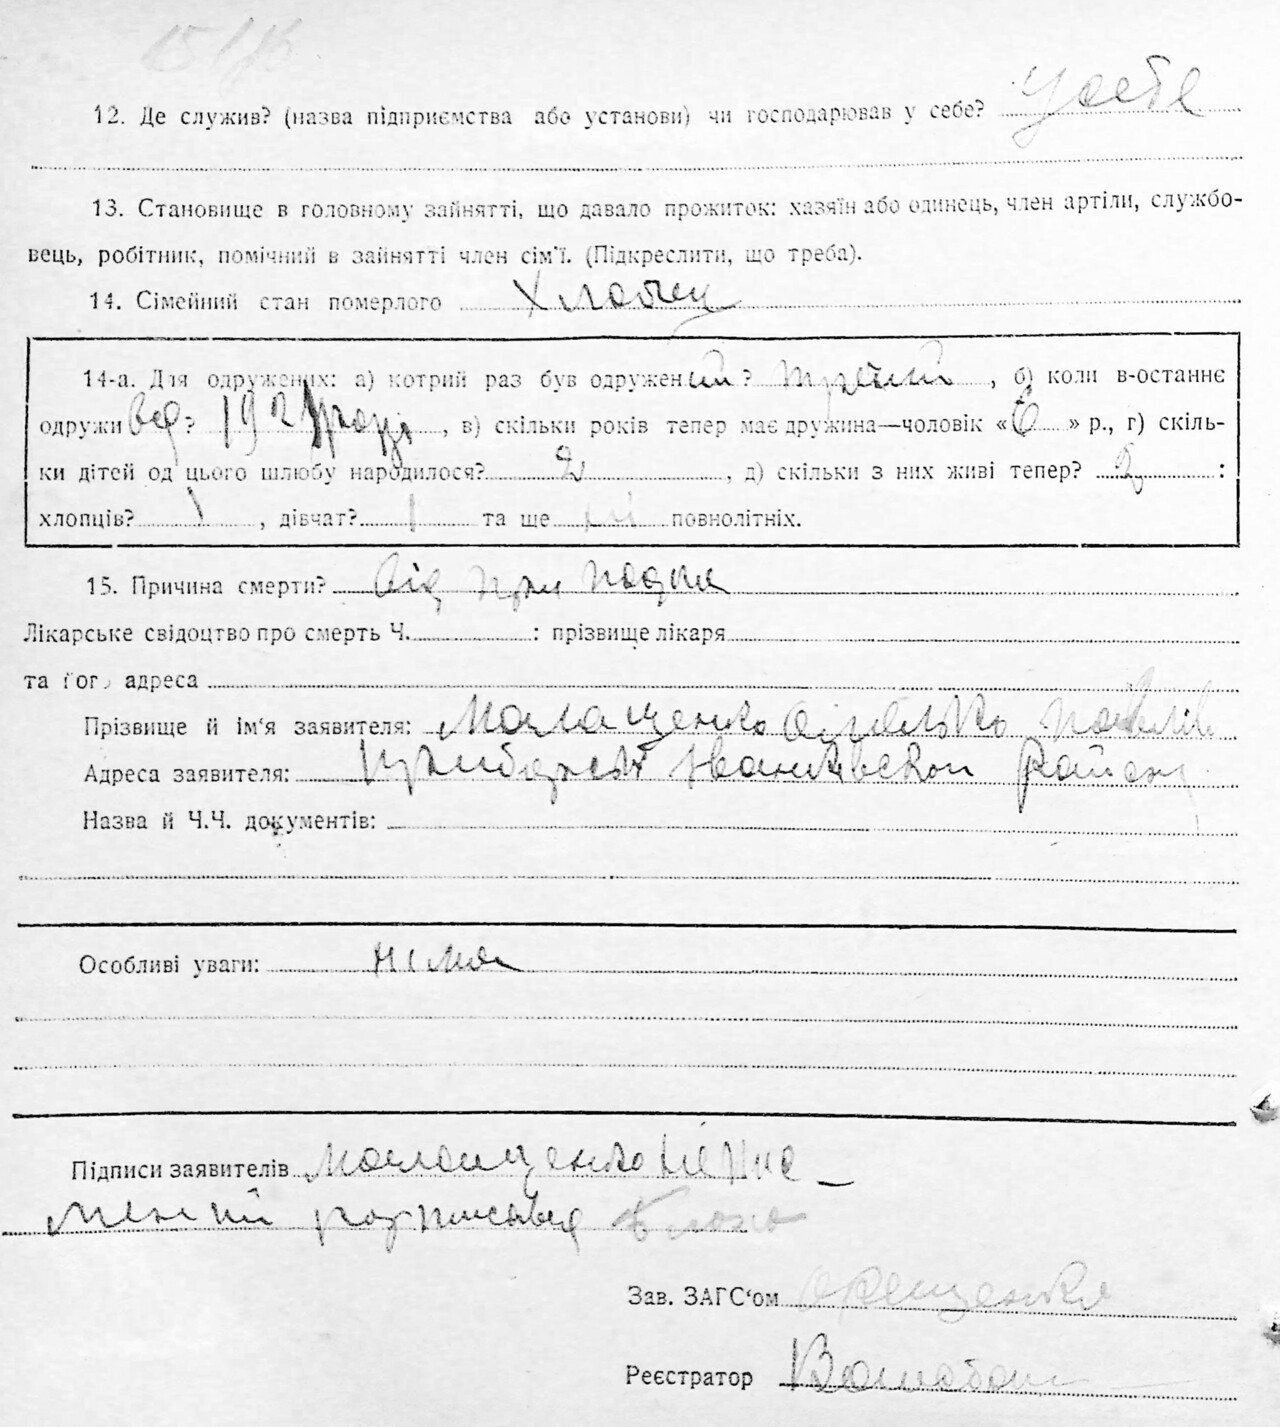 12. Де служив? (назва підприємства або установи) чи господарював у себе? У себе
13. Становище в головному зайнятті, що давало прожиток: хазяїн або одинець, член артіли, службо-
вець, робітник, помічний в зайнятті член сім'ї. (Підкреслити, що треба).
14. Сімейний стан померлого Хлопец
14-а. Для одружених: а) котрий раз був одружений? третий, б) коли в-останнє
одружи вся? 192 році, в) скільки років тепер має дружина—чоловік « » р., г) скіль-
ки дітей од цього шлюбу народилося? 2, д) скільки з них живі тепер? 2 :
хлопців? 1, дівчат? 1 та ще повнолітніх.
15. Причина смерти? Від
Лікарське свідоцтво про смерть Ч. : прізвище лікаря
та його адреса
Прізвище й ім'я заявителя: Малащенко
Адреса заявителя: Іванківском район
Назва й Ч.Ч. документів:
Особливі уваги: нима
Підписи заявителів Малащенко непис-
мений росписався
Зав. ЗАГС'ом
Реєстратор